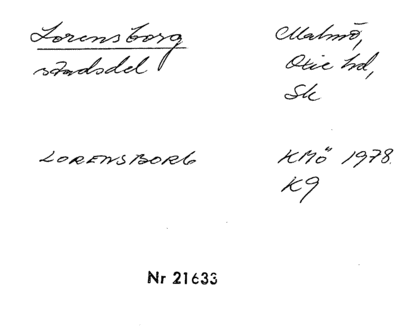 Lorensborg
stadsdel
Malmö,
Oxie hd,
Sk
LORENSBORG
KMö 1978
K9
Nr 21633